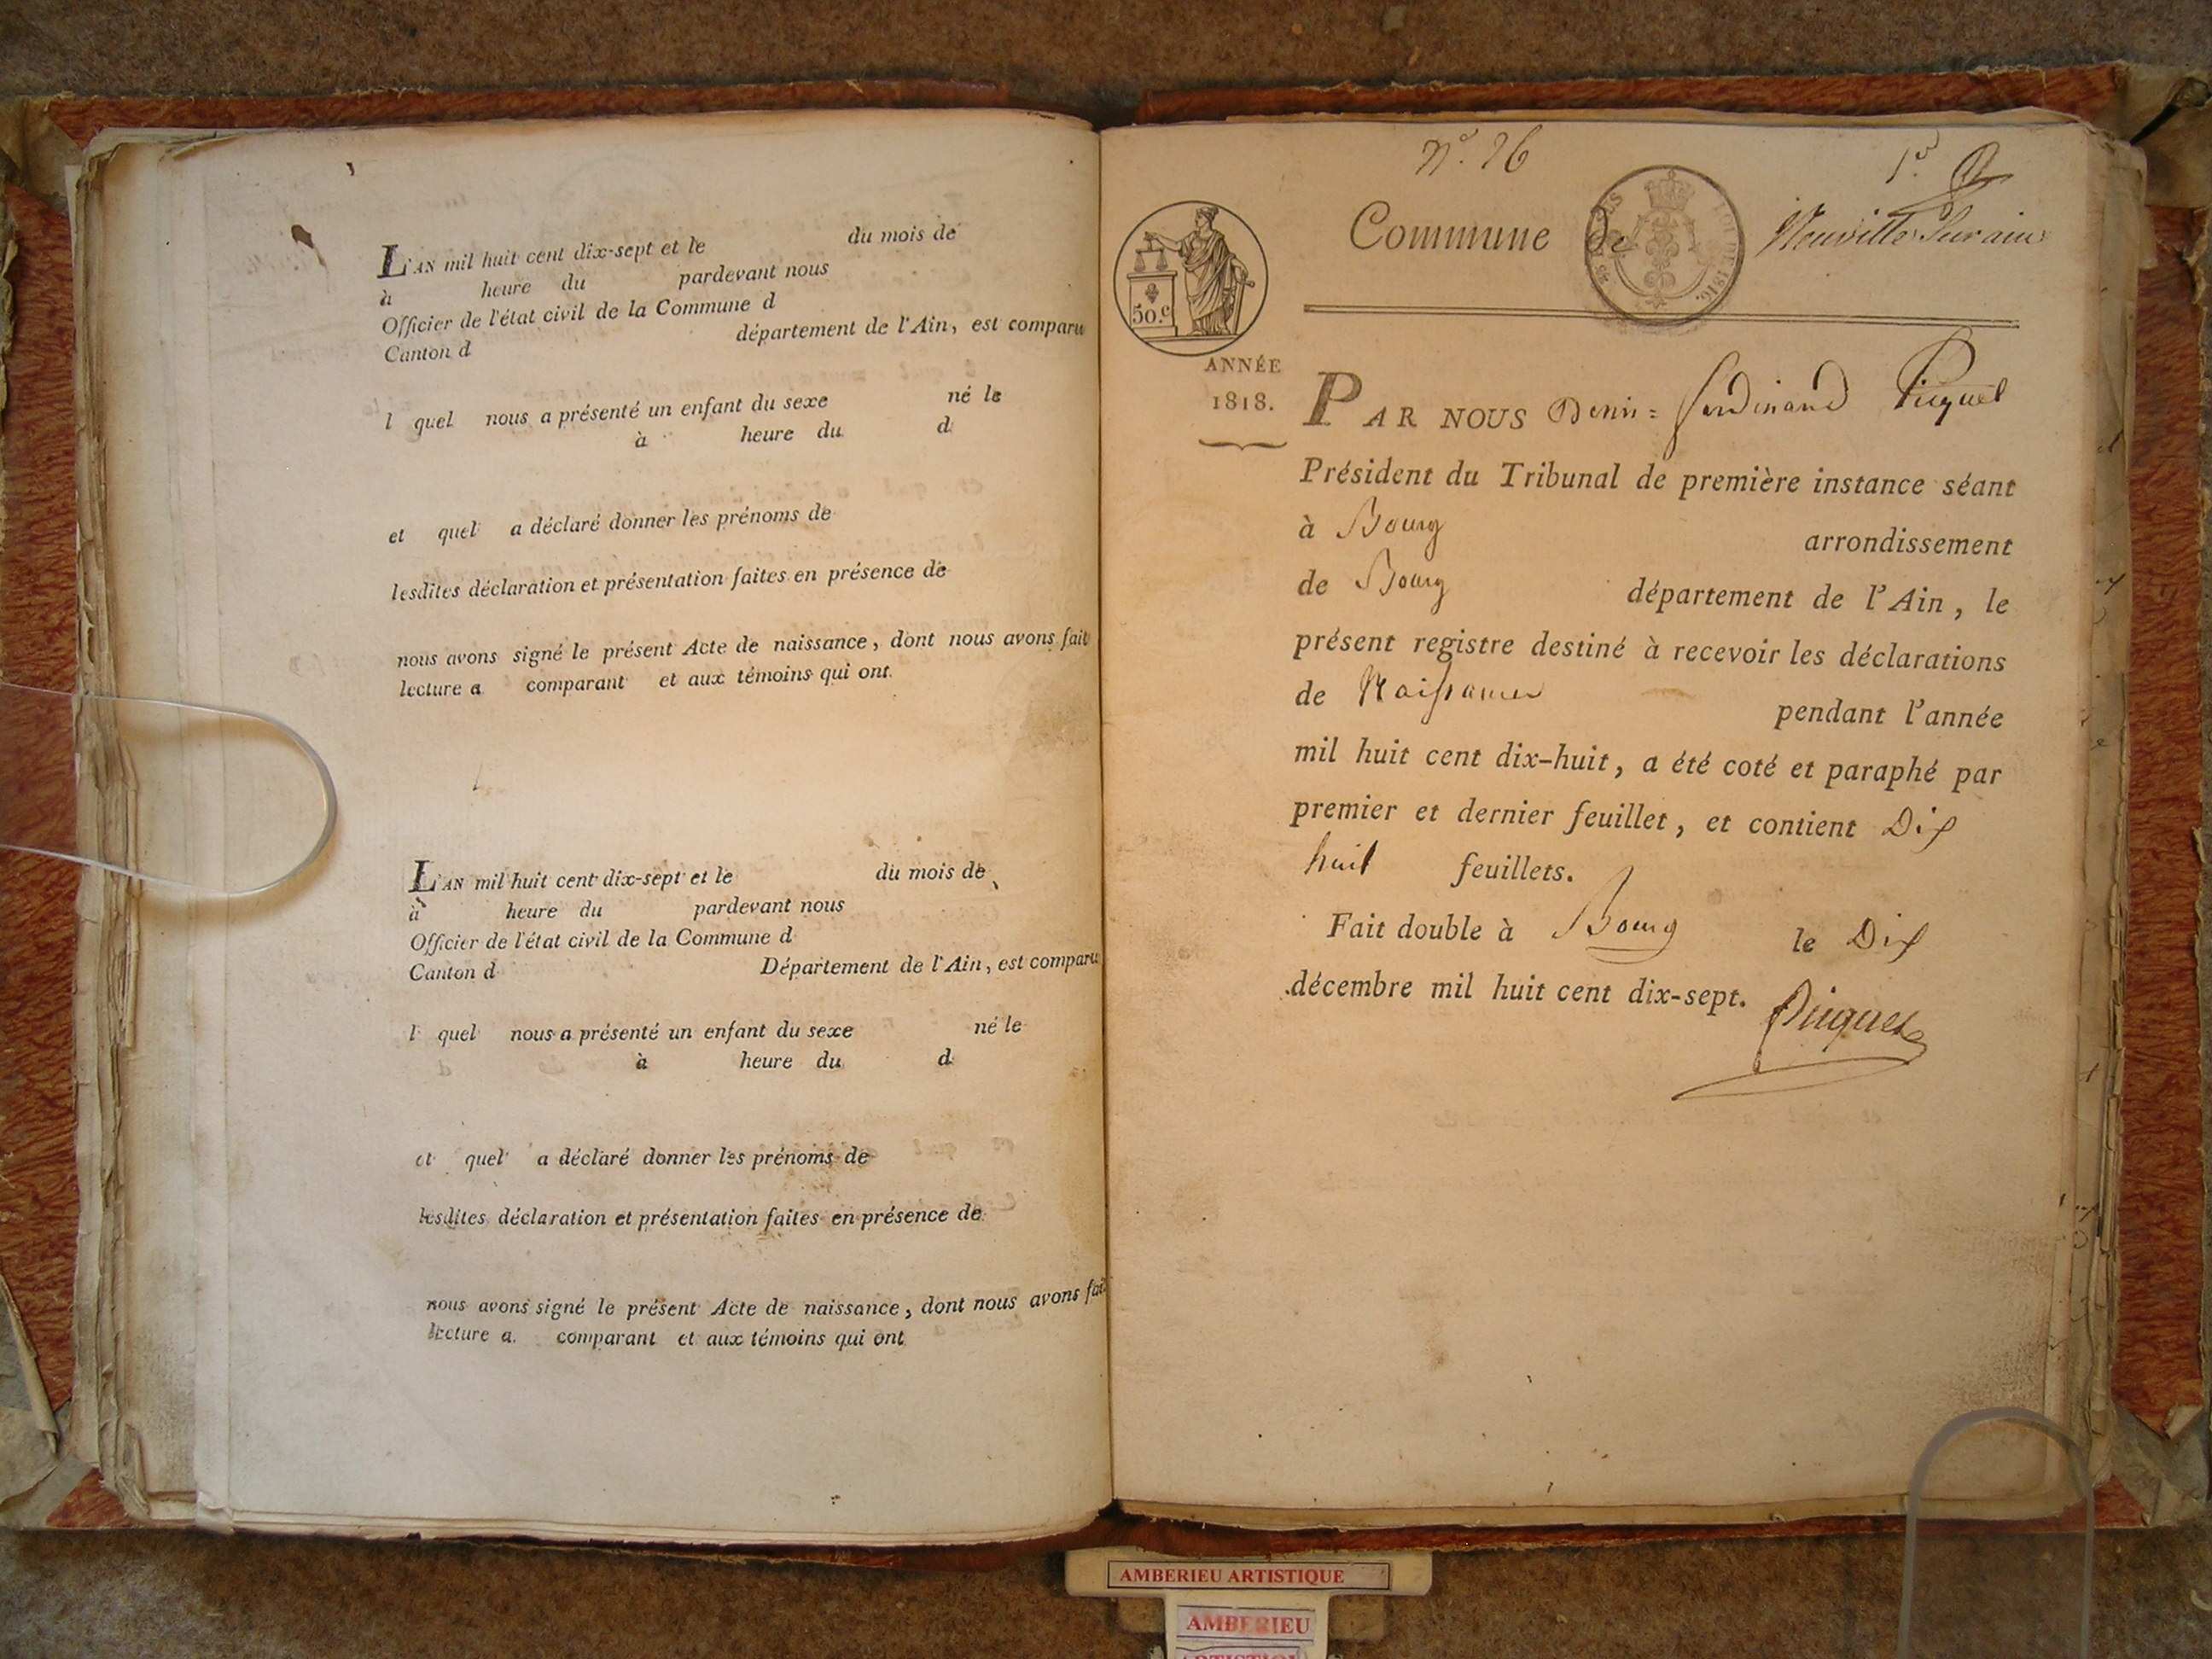 L'AN mil huit cent dix-sept et le du mois de
à heure du pardevant nous
Officier de l'état civil de la Commune d
Canton d département de l'Ain, est comparu
l quel nous a présenté un enfant du sexe né le
à heure du d
et quel a déclaré donner les prénoms de
lesdites déclaration et présentation faites en présence de
nous avons signé le présent Acte de naissance, dont nous avons fait
lecture a comparant et aux témoins qui ont
L'AN mil huit cent dix-sept et le du mois de
à heure du pardevant nous
Officier de l'état civil de la Commune d
Canton d Département de l'Ain, est comparu
l quel nous a présenté un enfant du sexe né le
à heure du d
et quel a déclaré donner les prénoms de
lesdites déclaration et présentation faites en présence de
nous avons signé le présent Acte de naissance, dont nous avons fait
lecture a comparant et aux témoins qui ont
N° 26
Commune De Neuville Sur ain
50.c
ANNÉE
1818.
PAR NOUS Denis = ferdinand Piquet
Président du Tribunal de première instance séant
à Bourg arrondissement
de Bourg département de l'Ain, le
présent registre destiné à recevoir les déclarations
de Naissances pendant l'année
mil huit cent dix-huit, a été coté et paraphé par
premier et dernier feuillet, et contient Dix
huit feuillets.
Fait double à Bourg le Dix
décembre mil huit cent dix-sept.
Piquet
AMBERIEU ARTISTIQUE
AMBERIEU
ARTISTIQU